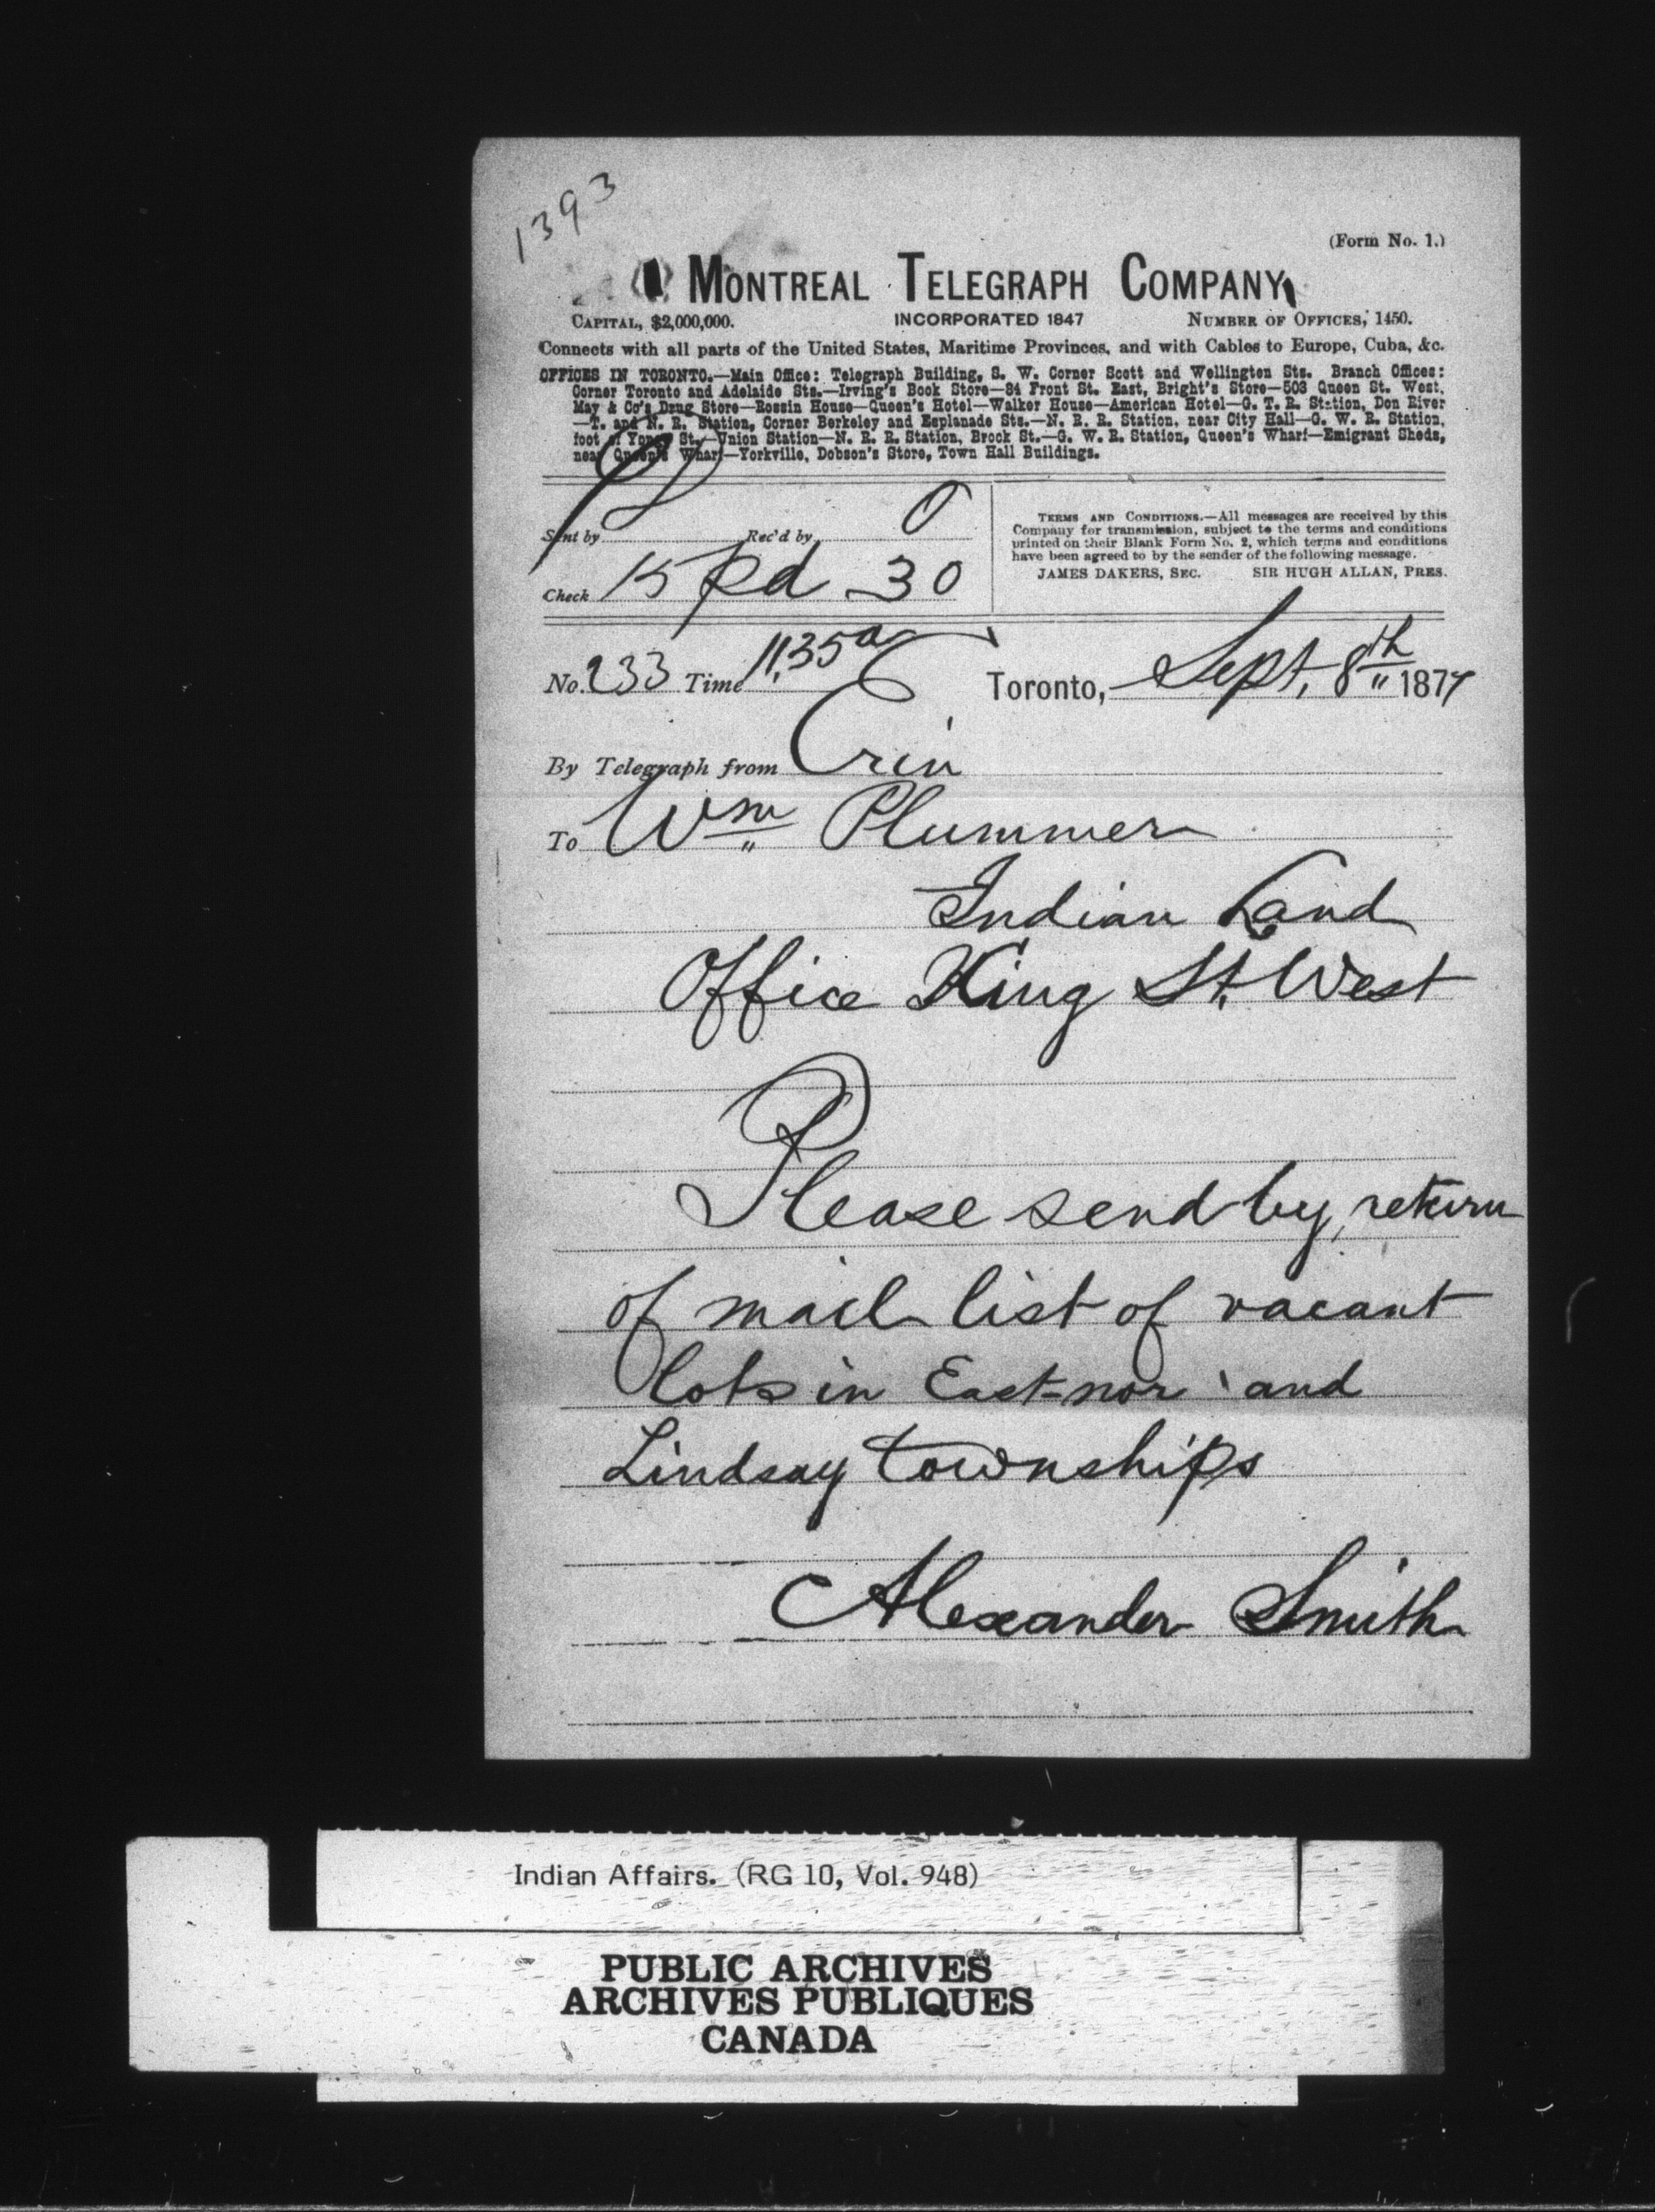 1393
(Form No. 1.)
MONTREAL TELEGRAPH COMPANY
CAPITAL, $2,000,000. INCORPORATED 1847 NUMBER OF OFFICES, 1450.
Connects with all parts of the United States, Maritime Provinces, and with Cables to Europe, Cuba, &c.
OFFICES IN TORONTO.—Main Office: Telegraph Building, S. W. Corner Scott and Wellington Sts. Branch Offices:
Corner Toronto and Adelaide Sts.—Irving's Book Store—84 Front St. East, Bright's Store—503 Queen St. West,
May & Co's Drug Store—Rossin House—Queen's Hotel—Walker House—American Hotel—G. T. R. Station, Don River
—T. and N. R. Station, Corner Berkeley and Esplanade Sts.—N. R. R. Station, near City Hall—G. W. R. Station,
foot of Yonge St.—Union Station—N. R. R. Station, Brock St.—G. W. R. Station, Queen's Wharf—Emigrant Sheds,
near Queen's Wharf—Yorkville, Dobson's Store, Town Hall Buildings.
Sent by Rec'd by O
Check 15 Pd 30
TERMS AND CONDITIONS.—All messages are received by this
Company for transmission, subject to the terms and conditions
printed on their Blank Form No. 2, which terms and conditions
have been agreed to by the sender of the following message.
JAMES DAKERS, SEC. SIR HUGH ALLAN, PRES.
No. 233 Time 11,35a Toronto, Sept, 8th 1877
By Telegraph from Erin
To Wm Plummer
Indian Land
Office King St. West
Please send by return
of mail list of vacant
lots in East-nor and
Lindsay townships
Alexander Smith
Indian Affairs. (RG 10, Vol. 948)
PUBLIC ARCHIVES
ARCHIVES PUBLIQUES
CANADA